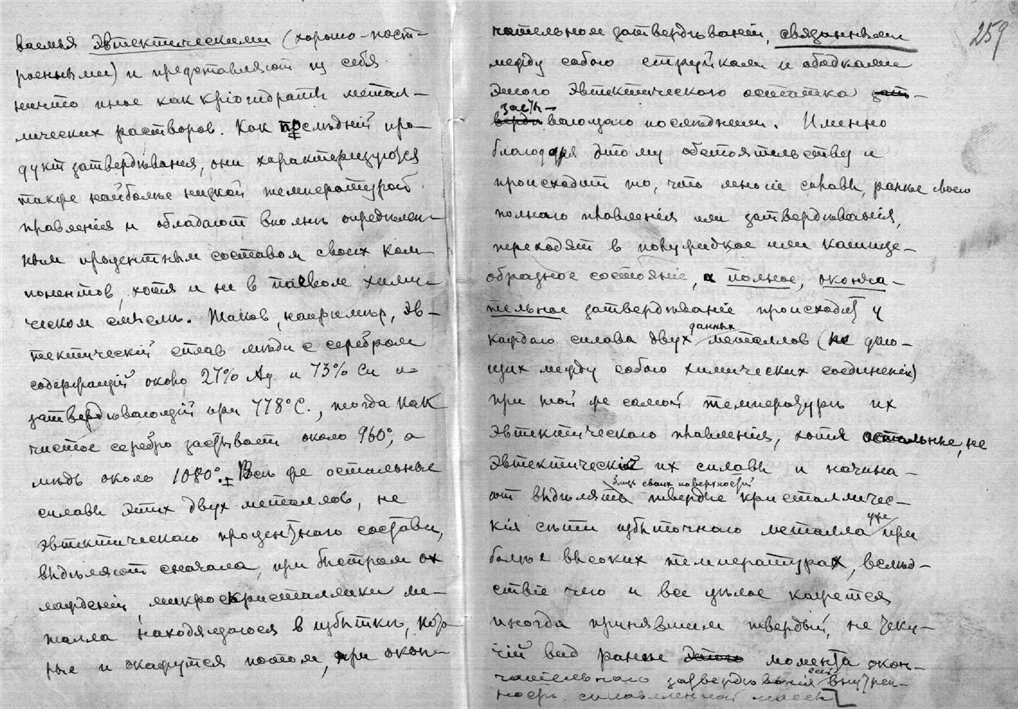 ваемыя эвтектическими (хорошо-пост-
роенными) и представляют из себя
ничто иное как кріогидраты метал-
лических растворов. Как последній про-
дукт затвердѣванія, они характеризуются
также наиболѣе низкой температурой
плавленія и обладают вполнѣ определен-
ным процентным составом своих ком-
понентов, хотя и не в полном хими-
ческом смыслѣ. Таков, например, эв-
тектическій сплав мѣди с серебром
содержащій около 27% Ag и 73% Cu и
затвердѣвающій при 778°C., тогда как
чистое серебро застывает около 960°, а
мѣдь около 1080°. Всѣ же остальные
сплавы этих двух металлов, не
эвтектическаго процентнаго состава,
выдѣляют сначала, при быстром ох
лажденіи микрокристаллики ме-
талла находящагося в избытке, кото-
рые и окажутся потом, при окон-
259
чательном затвердѣваніи, связанными
между собою струйками и ободками
этого эвтектического остатка зат-
засты-
верды вающаго последним. Именно
благодаря этому обстоятельству и
происходит то, что многіе сплавы, ранѣе своего
полнаго плавленія или затвердѣванія,
переходят в полужидкое или кашице-
образное состояніе, а полное, оконча-
тельное затвердѣваніе происходит у
данных
каждаго сплава двух металлов (не даю-
щих между собою химических соединеній)
при той же самой температурѣ их
эвтектическаго плавленія, хотя остальные, не
эвтектическіе их сплавы и начина-
близ своих поверхностей
ют выделять твердые кристалличес-
уже
кія сѣти избыточнаго металла при
болѣе высоких температурах, вслед-
ствіе чего и все цѣлое кажется
иногда принявшим твердый, не теку-
чій вид ранѣе этого момента окон-
чательнаго затвердѣванія всей внутрен-
ности сплавленной массы